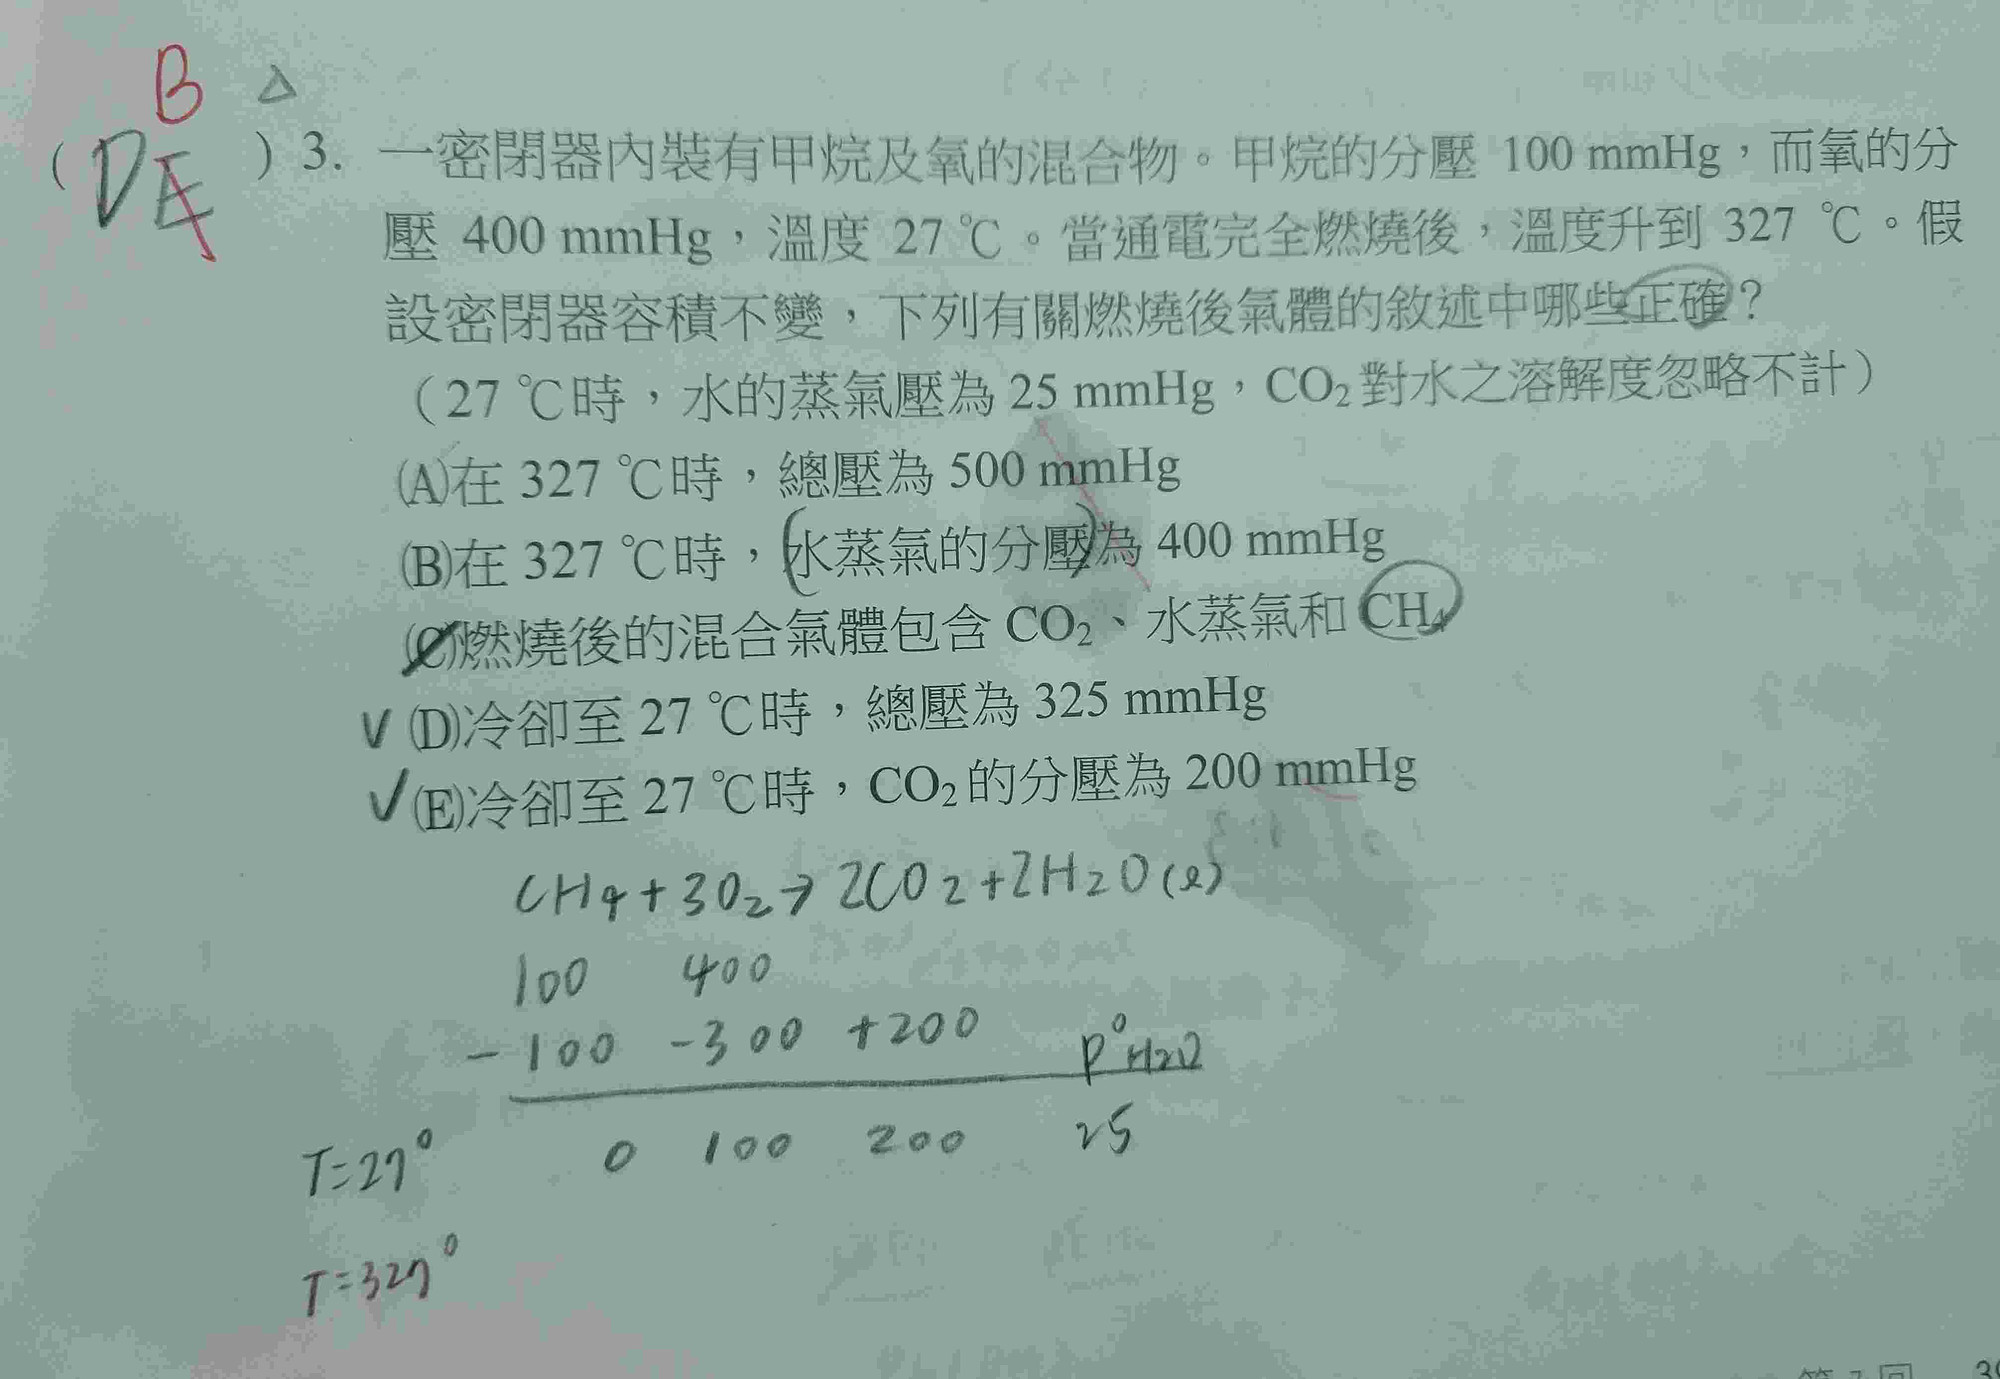 B △
(DE) 3. 一密閉器內裝有甲烷及氧的混合物。甲烷的分壓 100 mmHg，而氧的分
壓 400 mmHg，溫度 27 ℃。當通電完全燃燒後，溫度升到 327 ℃。假
設密閉器容積不變，下列有關燃燒後氣體的敘述中哪些正確？
（27 ℃時，水的蒸氣壓為 25 mmHg，CO₂對水之溶解度忽略不計）
(A)在 327 ℃時，總壓為 500 mmHg
(B)在 327 ℃時，(水蒸氣的分壓)為 400 mmHg
(C)燃燒後的混合氣體包含 CO₂、水蒸氣和 CH₄
✓ (D)冷卻至 27 ℃時，總壓為 325 mmHg
✓ (E)冷卻至 27 ℃時，CO₂的分壓為 200 mmHg
CH₄+3O₂→2CO₂+2H₂O(l)
100 400
-100 -300 +200 P°H₂O
T=27° 0 100 200 25
T=327°